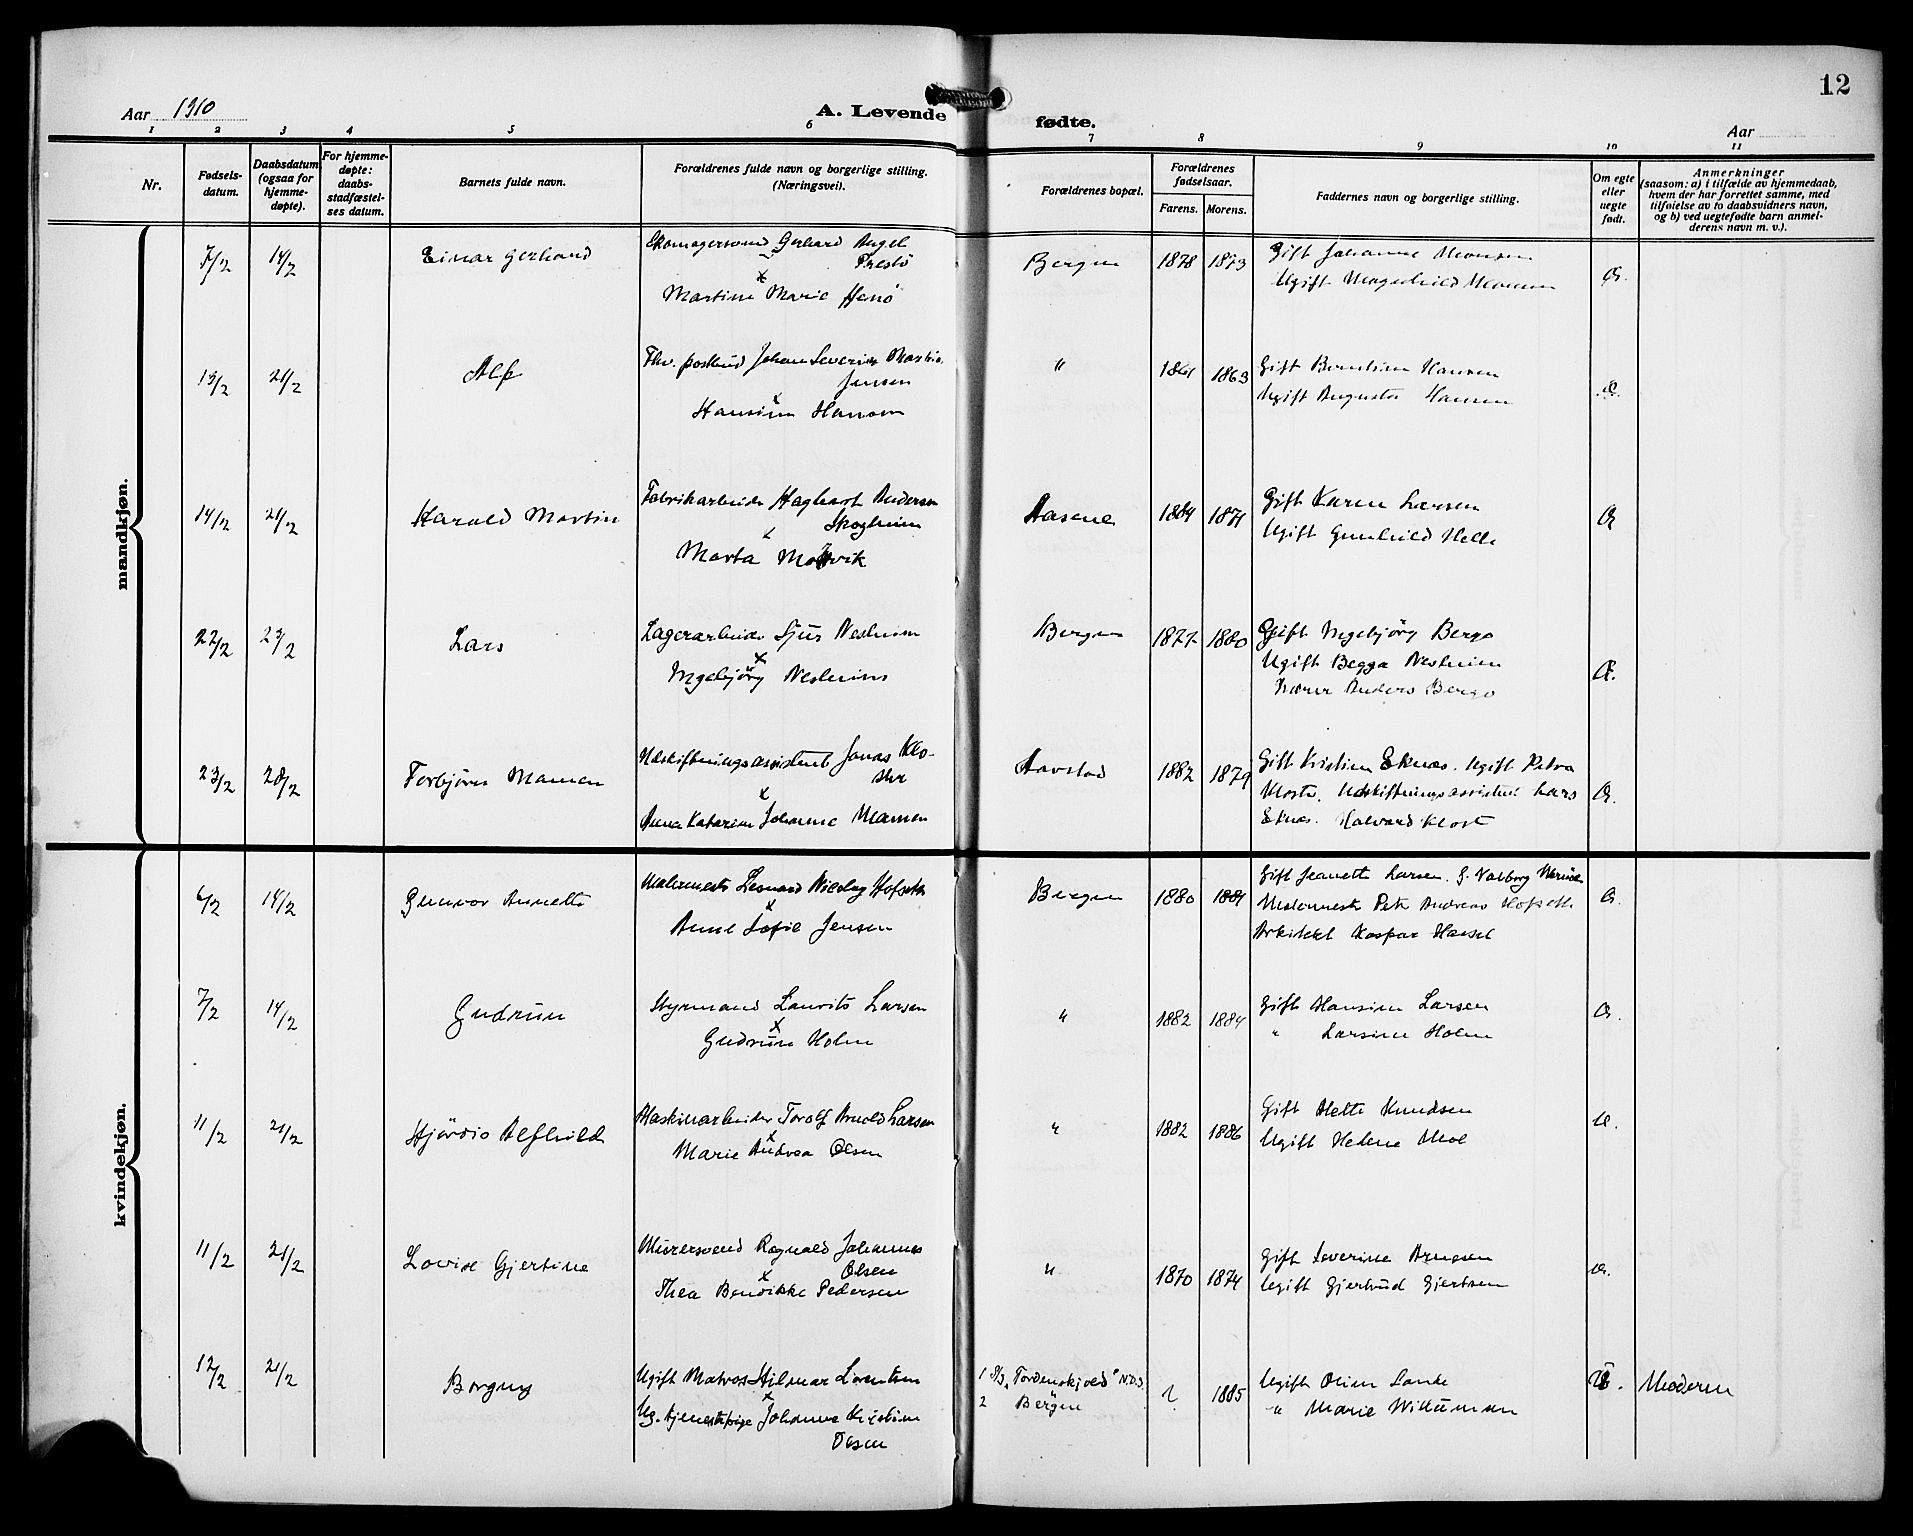 12
Aar 1910
A. Levende fødte.
Aar
1 2 3 4 5 6 7 8 9 10 11
Nr.
Fødsels-
datum.
Daabsdatum
(ogsaa for
hjemme-
døpte).
For hjemme-
døpte:
daabs-
stadfæstel-
ses datum.
Barnets fulde navn.
Forældrenes fulde navn og borgerlige stilling.
(Næringsvei).
Forældrenes bopæl.
Forældrenes
fødselsaar.
Farens. Morens.
Faddernes navn og borgerlige stilling.
Om egte
eller
uegte
født.
Anmerkninger
(saasom: a) i tilfælde av hjemmedaab,
hvem der har forrettet samme, med
tilføielse av to daabsvidners navn,
og b) ved uegtefødte barn anmel-
derens navn m. v.).
mandkjøn.
7/2 14/2 Einar Gerhard Skomagersvend Gerhard Angel
Trestö
x
Martine Marie Henö
Bergen 1878 1873 Gift Johanne Monsen
Ugift Magnhild Monsen
Æ.
13/2 21/2 Alf Fhv. postbud Johan Severin Martin
Jensen
x
Hansine Hansen
" 1861 1863 Gift Berntine Hansen
Ugift Augusta Hansen
Æ.
14/2 21/2 Harald Martin Fabrikarbeider Hagbart Andersen
Skogheim
x
Marta
Aasene 1884 1871 Gift Karen Larsen
Ugift Gunhild Helle
Æ
22/2 23/2 Lars Lagerarbeider Sjur Nesheim
x
Ingebjörg Nesheim
Bergen 1877 1880 Gift Ingebjörg Bergo
Ugift Begga Nesheim
Anders Bergo
Æ.
23/2 28/2 Torbjörn Mamen Udskiftningsassistent Jonas Klo-
ster
x
Anna Katarine Johanne Mamen
Aarstad 1882 1879 Gift Kristine Eknæs. Ugift Petra
Kloster. Udskiftningsassistent Lars
Eknæs. Halvard Kloster
Æ.
kvindekjøn.
6/2 14/2 Gunvor Annette Malermester Leonard Nicolay Hofseth
x
Anne Sofie Jensen
Bergen 1880 1881 Gift Jeanette Larsen. G. Valborg
Malermester Peter Andreas Hofseth
Arkitekt Kaspar Hassel
Æ.
7/2 14/2 Gudrun Styrmand Laurits Larsen
x
Gudrun Holm
" 1882 1884 Gift Hansine Larsen
" Larsine Holm
Æ.
11/2 21/2 Hjördis Alfhild Maskinarbeider Torolf Arnold Larsen
x
Marie Andrea Olsen
" 1882 1886 Gift Mette Knudsen
Ugift Helene Moe
Æ.
11/2 21/2 Lovise Gjertine Murersvend Ragnvald Johannes
Olsen
x
Thea Bendikke Pedersen
" 1870 1874 Gift Severine Arnesen
Ugift Gjertrud Gjertsen
Æ.
12/2 21/2 Borgny Ugift Matros Hilmar Lorentzen
x
Ug. tjenestepige Johanne Kristine
Olsen
1 S/S „Tordenskjold" N.D.S.
2 Bergen
? 1885 Ugift Oline Lanke
" Marie Wittumsen
U. Moderen